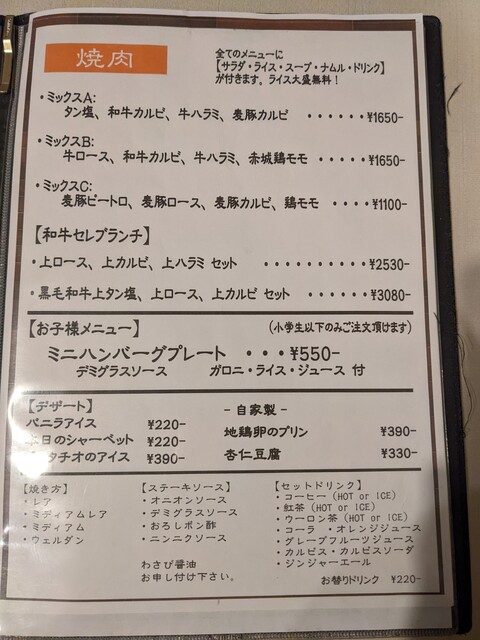 焼肉
全てのメニューに
【サラダ・ライス・スープ・ナムル・ドリンク】
が付きます。ライス大盛無料！
・ミックスA:
タン塩、和牛カルビ、牛ハラミ、麦豚カルビ ・・・・・・¥1650-
・ミックスB:
牛ロース、和牛カルビ、牛ハラミ、赤城鶏モモ ・・・・・¥1650-
・ミックスC:
麦豚ピートロ、麦豚ロース、麦豚カルビ、鶏モモ ・・・・¥1100-
【和牛セレブランチ】
・上ロース、上カルビ、上ハラミ セット ・・・・・・・・・・¥2530-
・黒毛和牛上タン塩、上ロース、上カルビ セット ・・・・・¥3080-
【お子様メニュー】 (小学生以下のみご注文頂けます)
ミニハンバーグプレート ・・・¥550-
デミグラスソース ガロニ・ライス・ジュース 付
【デザート】
バニラアイス ¥220-
本日のシャーベット ¥220-
タチオのアイス ¥390-
- 自家製 -
地鶏卵のプリン ¥390-
杏仁豆腐 ¥330-
【焼き方】
・レア
・ミディアムレア
・ミディアム
・ウェルダン
【ステーキソース】
・オニオンソース
・デミグラスソース
・おろしポン酢
・ニンニクソース
わさび醤油
お申し付け下さい。
【セットドリンク】
・コーヒー (HOT or ICE)
・紅茶 (HOT or ICE)
・ウーロン茶 (HOT or ICE)
・コーラ ・オレンジジュース
・グレープフルーツジュース
・カルピス・カルピスソーダ
・ジンジャーエール
お替りドリンク ¥220-